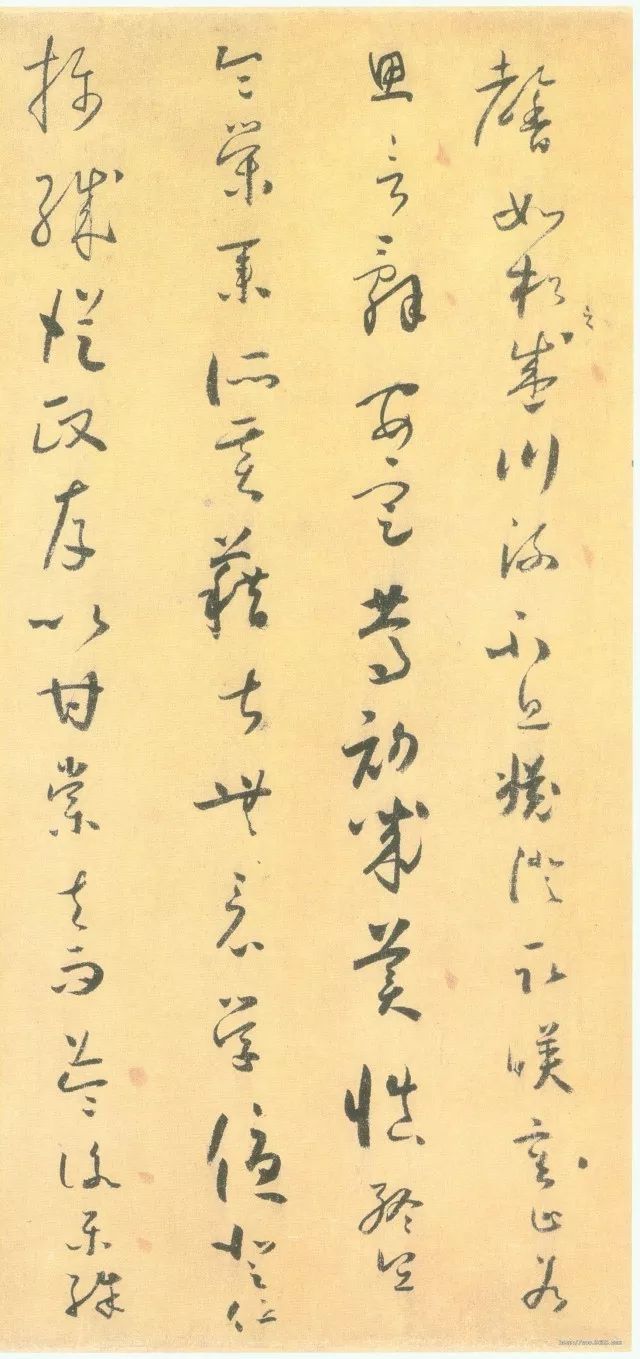 馨如松之盛川流不息淵澄取暎容止若
思言辭安定篤初誠美慎終宜
令榮業所基藉甚無竟學優登仕
攝職從政存以甘棠去而益詠樂殊